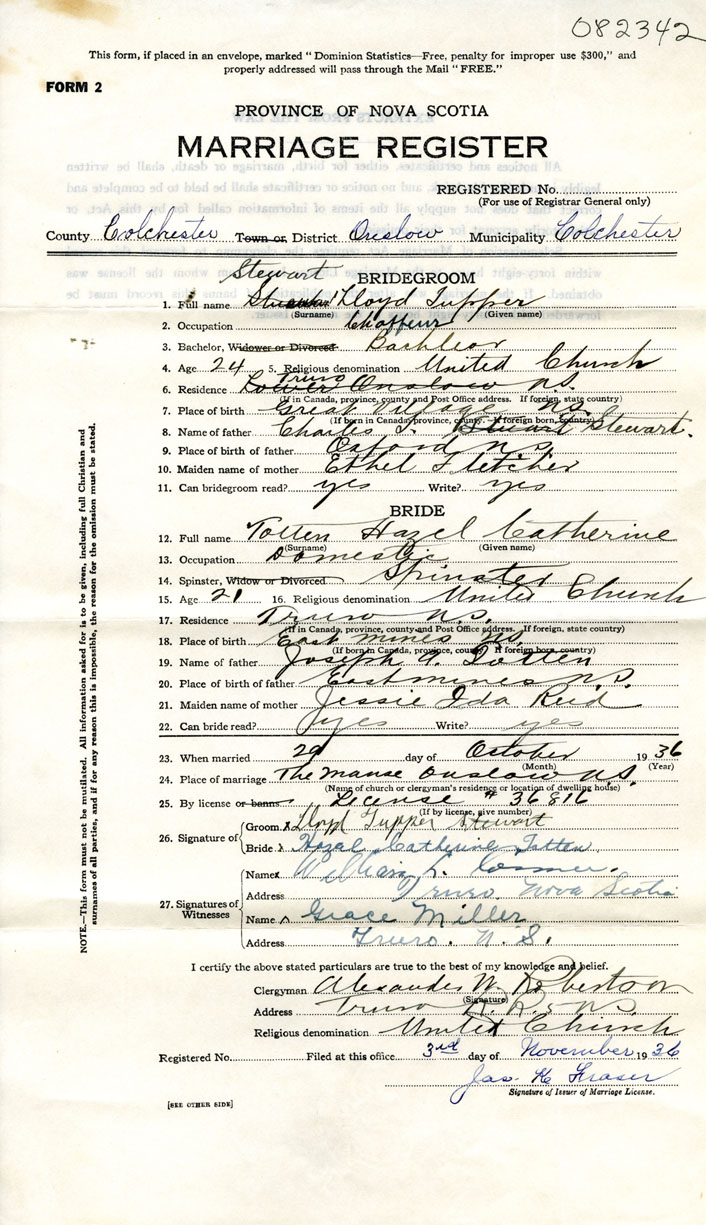 082342
This form, if placed in an envelope, marked "Dominion Statistics—Free, penalty for improper use $300," and
properly addressed will pass through the Mail "FREE."
FORM 2
PROVINCE OF NOVA SCOTIA
MARRIAGE REGISTER
REGISTERED No.
(For use of Registrar General only)
County Colchester Town or District Onslow Municipality Colchester
BRIDEGROOM
Stewart
1. Full name Lloyd Tupper
(Surname) (Given name)
2. Occupation Chaffeur
3. Bachelor, Widower or Divorced Bachleor
4. Age 24 5. Religious denomination United Church
Truro
6. Residence Lower Onslow N.S.
(If in Canada, province, county and Post Office address. If foreign, state country)
7. Place of birth Great Village N.S.
(If born in Canada, province, county. If foreign born, country)
8. Name of father Charles T. Stewart.
9. Place of birth of father Oxford N.S.
10. Maiden name of mother Ethel Fletcher
11. Can bridegroom read? yes Write? yes
BRIDE
12. Full name Totten Hazel Catherine
(Surname) (Given name)
13. Occupation Domestic
14. Spinster, Widow or Divorced Spinster
15. Age 21 16. Religious denomination United Church
17. Residence Truro N.S.
(If in Canada, province, county and Post Office address. If foreign, state country)
18. Place of birth East mines N.S.
(If born in Canada, province, county. If foreign born, country)
19. Name of father Joseph Totten
20. Place of birth of father East mines N.S.
21. Maiden name of mother Jessie Ida Reid
22. Can bride read? yes Write? yes
23. When married 29 day of October 1936
(Month) (Year)
24. Place of marriage The manse Onslow N.S.
(Name of church or clergyman's residence or location of dwelling house)
25. By license or banns License # 36816
(If by license, give number)
26. Signature of
Groom x Lloyd Tupper Stewart
Bride x Hazel Catherine Totten
27. Signatures of Witnesses
Name x William L.
Address Truro, Nova Scotia
Name x Grace Miller
Address Truro. N.S.
I certify the above stated particulars are true to the best of my knowledge and belief.
Clergyman Alexander W. Robertson
(Signature)
Address Truro N.S.
Religious denomination United Church
Registered No. Filed at this office 3rd day of November 1936
Jas. K. Fraser
Signature of Issuer of Marriage License.
[SEE OTHER SIDE]
NOTE.—This form must not be mutilated. All information asked for is to be given, including full Christian and
surnames of all parties, and if for any reason this is impossible, the reason for the omission must be stated.